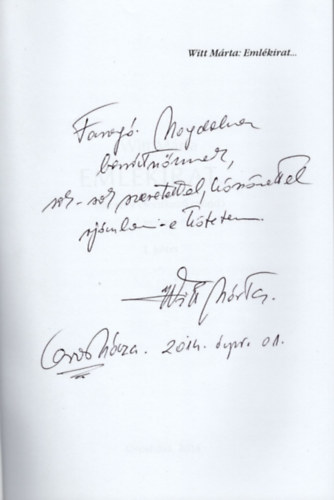 Witt Márta: Emlékirat...
Faragó Magdolna
barátnőmnek,
sok-sok szeretettel, köszönettel
ajánlom e kötetem.
Witt Márta.
Orosháza. 2014. ápr. 01.